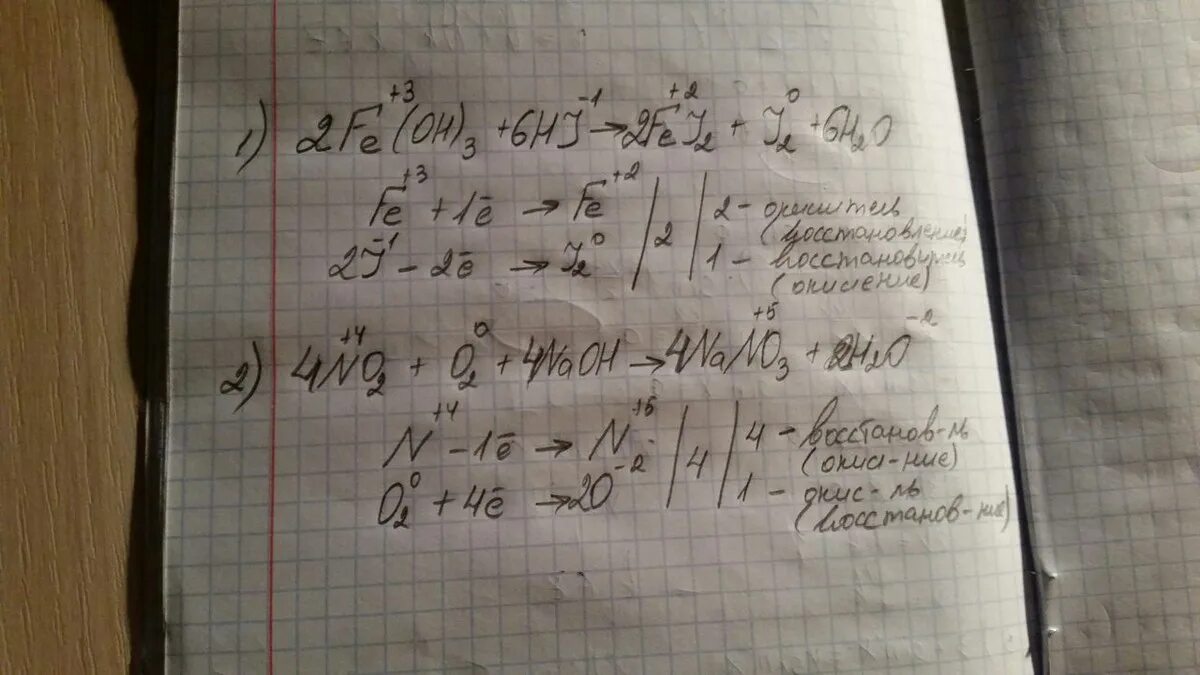 1) 2Fe⁺³(OH)₃ + 6HJ⁻¹ → 2Fe⁺²J₂ + J₂⁰ + 6H₂O
Fe⁺³ + 1ē → Fe⁺² | 2 | 2 - окислитель
(восстановление)
2J⁻¹ - 2ē → J₂⁰ | | 1 - восстановитель
(окисление)
2) 4N⁺⁴O₂ + O₂⁰ + 4NaOH → 4NaN⁺⁵O₃ + 2H₂O⁻²
N⁺⁴ - 1ē → N⁺⁵ | 4 | 4 - восстанов-ль
(окис-ние)
O₂⁰ + 4ē → 2O⁻² | | 1 - окис-ль
(восстанов-ние)